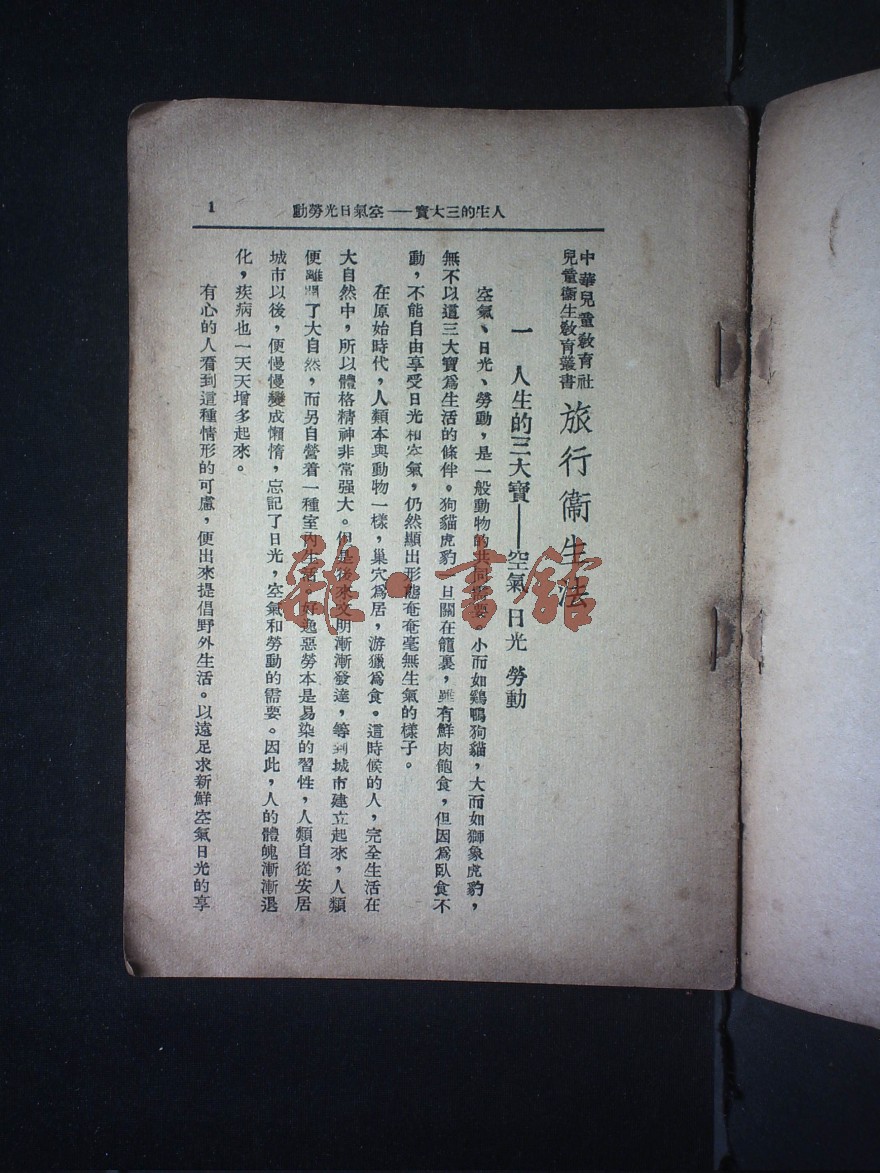 人生的三大寶——空氣日光勞動
1
中華兒童敎育社
兒童衞生敎育叢書
旅行衞生法
一 人生的三大寶——空氣 日光 勞動
空氣、日光、勞動，是一般動物的共同需要。小而如鷄鴨狗貓，大而如獅象虎豹，
無不以這三大寶爲生活的條件。狗貓虎豹一旦關在籠裏，雖有鮮肉飽食，但因爲臥食不
動，不能自由享受日光和空氣，仍然顯出形態奄奄毫無生氣的樣子。
在原始時代，人類本與動物一樣，巢穴爲居，游獵爲食。這時候的人，完全生活在
大自然中，所以體格精神非常强大。但是後來文明漸漸發達，等到城市建立起來，人類
便離開了大自然，而另自營着一種室內生活。好逸惡勞本是易染的習性，人類自從安居
城市以後，便慢慢變成懶惰，忘記了日光，空氣和勞動的需要。因此，人的體魄漸漸退
化，疾病也一天天增多起來。
有心的人看到這種情形的可慮，便出來提倡野外生活。以遠足求新鮮空氣日光的享
雜·書館